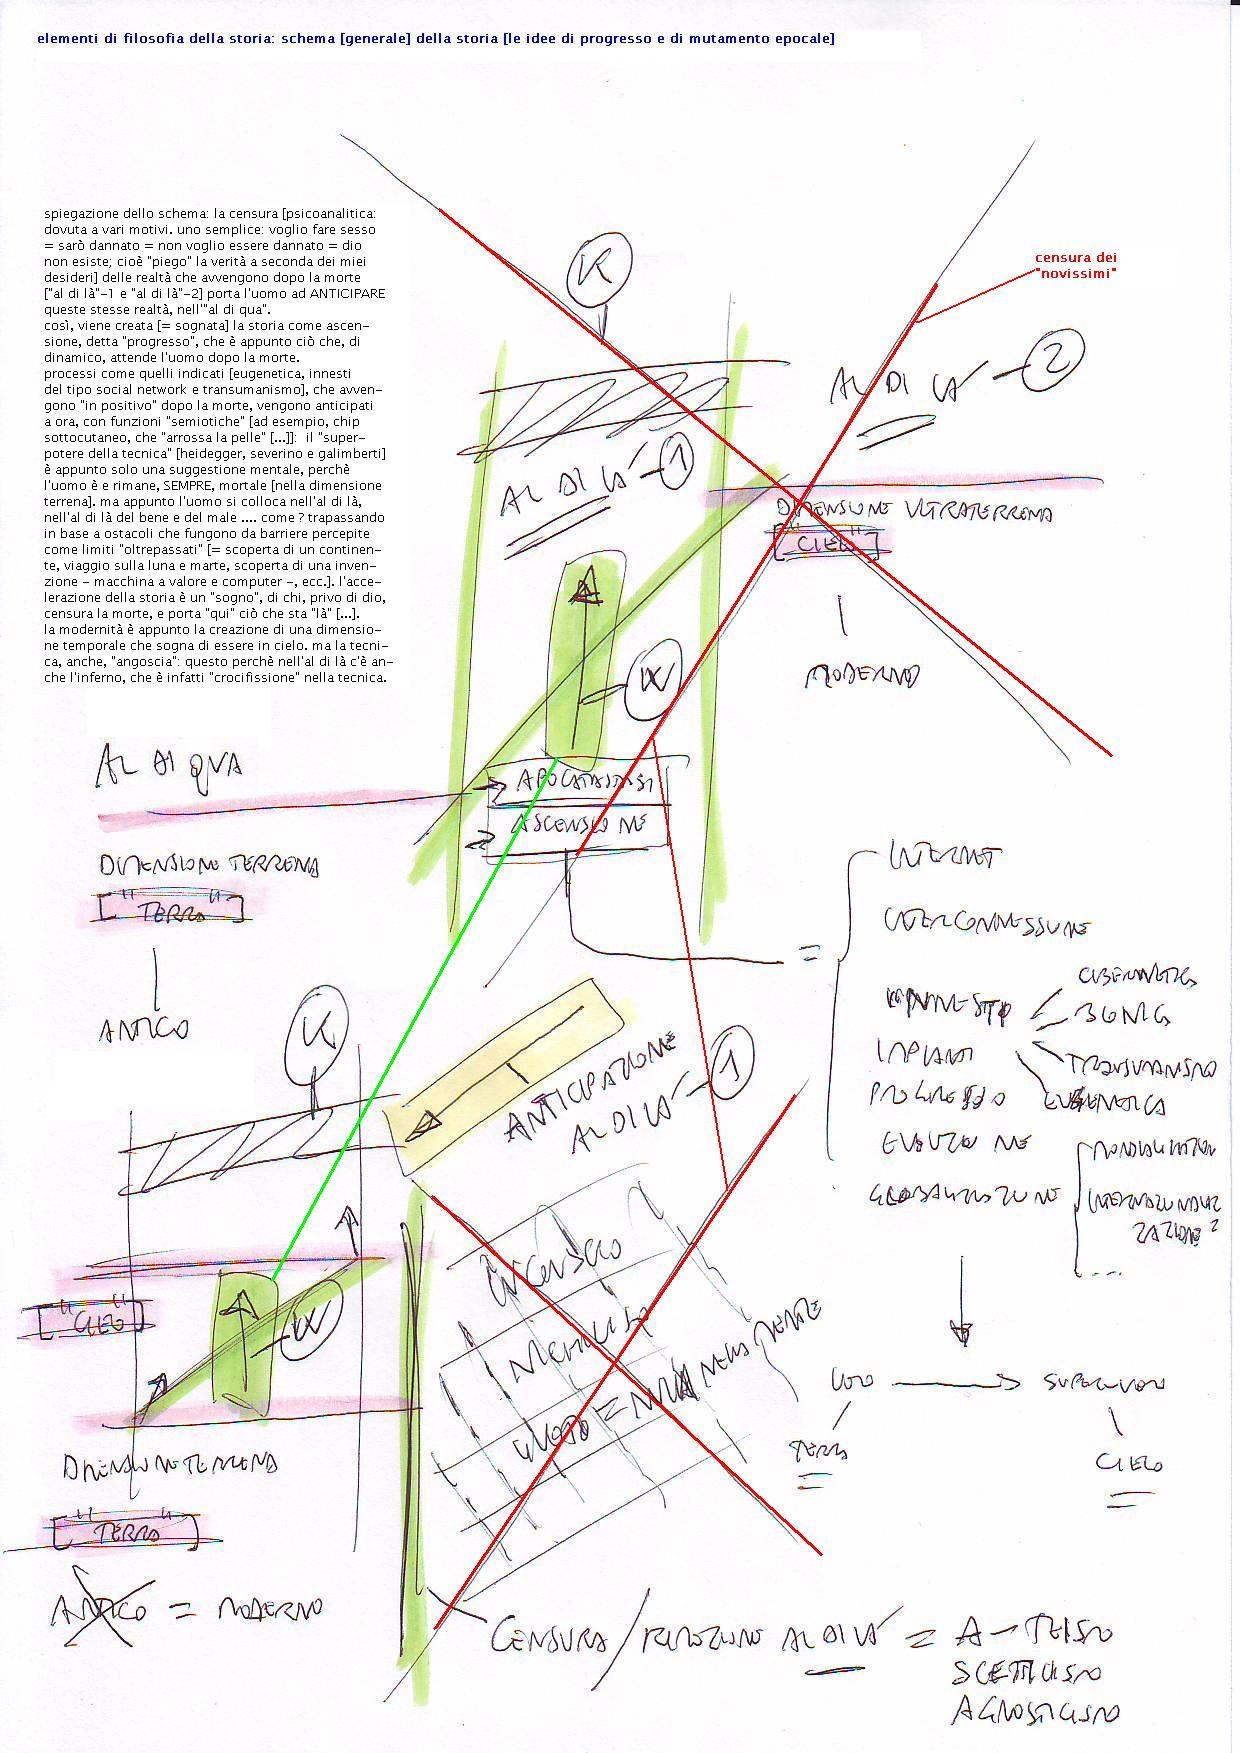 elementi di filosofia della storia: schema [generale] della storia [le idee di progresso e di mutamento epocale]
spiegazione dello schema: la censura [psicoanalitica:
dovuta a vari motivi. uno semplice: voglio fare sesso
= sarò dannato = non voglio essere dannato = dio
non esiste; cioè "piego" la verità a seconda dei miei
desideri] delle realtà che avvengono dopo la morte
["al di là"-1 e "al di là"-2] porta l'uomo ad ANTICIPARE
queste stesse realtà, nell'"al di qua".
così, viene creata [= sognata] la storia come ascen-
sione, detta "progresso", che è appunto ciò che, di
dinamico, attende l'uomo dopo la morte.
processi come quelli indicati [eugenetica, innesti
del tipo social network e transumanismo], che avven-
gono "in positivo" dopo la morte, vengono anticipati
a ora, con funzioni "semiotiche" [ad esempio, chip
sottocutaneo, che "arrossa la pelle" [...]]:  il "super-
potere della tecnica" [heidegger, severino e galimberti]
è appunto solo una suggestione mentale, perchè
l'uomo è e rimane, SEMPRE, mortale [nella dimensione
terrena]. ma appunto l'uomo si colloca nell'al di là,
nell'al di là del bene e del male .... come ? trapassando
in base a ostacoli che fungono da barriere percepite
come limiti "oltrepassati" [= scoperta di un continen-
te, viaggio sulla luna e marte, scoperta di una inven-
zione - macchina a valore e computer -, ecc.]. l'acce-
lerazione della storia è un "sogno", di chi, privo di dio,
censura la morte, e porta "qui" ciò che sta "là" [...].
la modernità è appunto la creazione di una dimensio-
ne temporale che sogna di essere in cielo. ma la tecni-
ca, anche, "angoscia": questo perchè nell'al di là c'è an-
che l'inferno, che è infatti "crocifissione" nella tecnica.
censura dei
"novissimi"
K
AL DI LÀ - 2
AL DI LÀ - 1
DIMENSIONE ULTRATERRENA
["CIELO"]
MODERNO
W
AL DI QUA
APOCATASTASI
ASCENSIONE
DIMENSIONE TERRENA
["TERRA"]
ANTICO
=
INTERNET
INTERCONNESSIONE
INNESTO
CIBERNETICA
BIONICA
TRANSUMANISMO
EUGENETICA
IMPIANTI
PROGRESSO
EVOLUZIONE
GLOBALIZZAZIONE
INTERNAZIONALIZ
ZAZIONE
K
ANTICIPAZIONE
AL DI LÀ - 1
["CIELO"]
W
UOMO
SUPERUOMO
TERRA
CIELO
DIMENSIONE TERRENA
["TERRA"]
ANTICO = MODERNO
CENSURA / RIMOZIONE AL DI LÀ = A-TEISMO
SCETTICISMO
AGNOSTICISMO